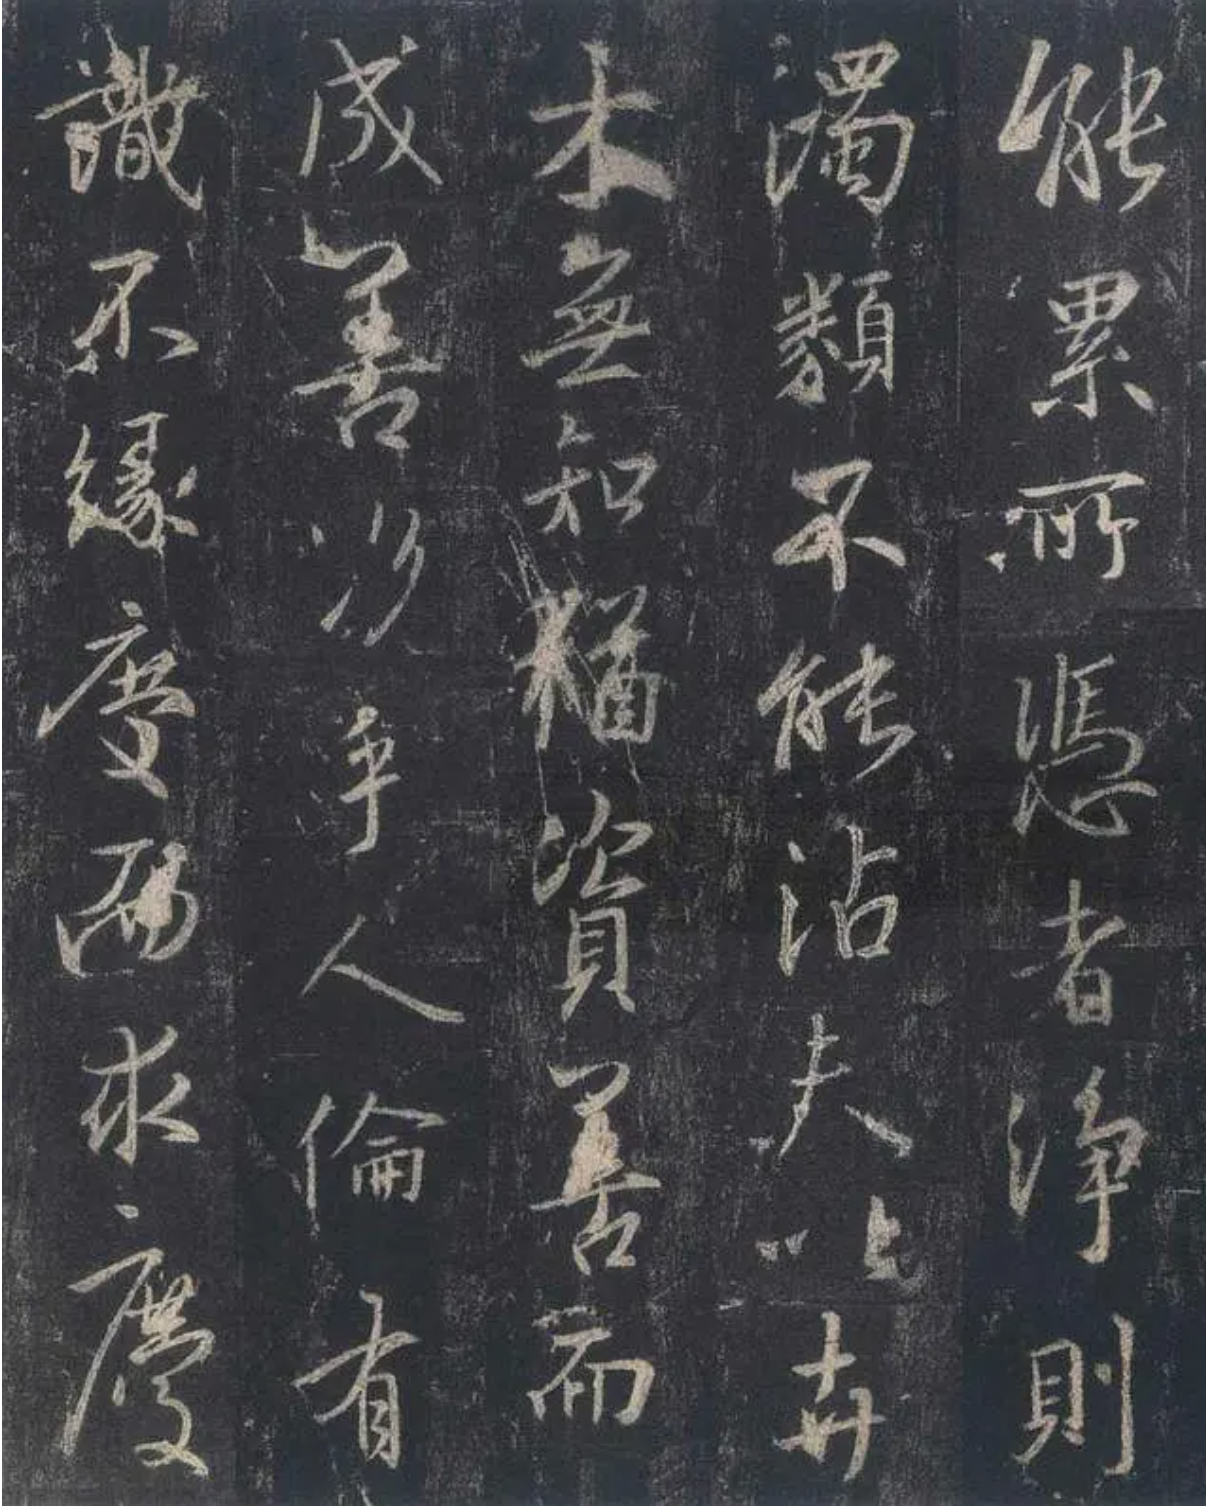 能累所憑者淨則
濁類不能沾夫以卉
木無知猶資善而
成善况乎人倫有
識不緣慶而求慶